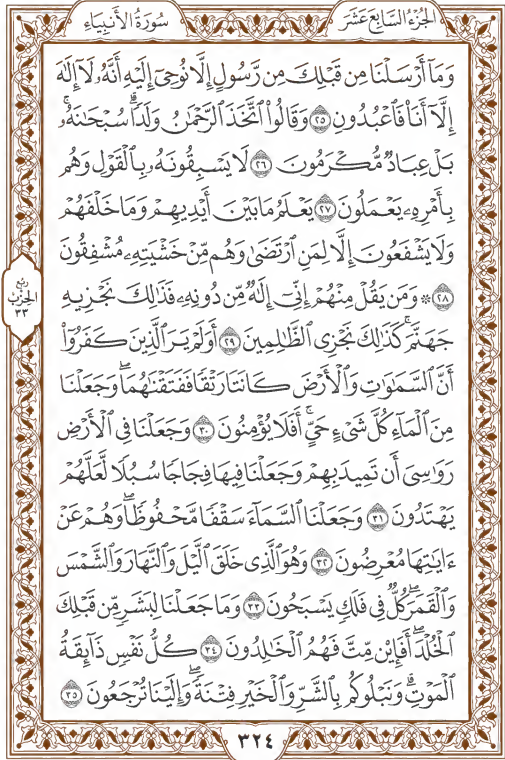 الجُزْءُ السَّابِعَ عَشَرَ
سُورَةُ الأَنبِيَاءِ
وَمَآ أَرۡسَلۡنَا مِن قَبۡلِكَ مِن رَّسُولٍ إِلَّا نُوحِيٓ إِلَيۡهِ أَنَّهُۥ لَآ إِلَٰهَ
إِلَّآ أَنَا۠ فَٱعۡبُدُونِ ٢٥ وَقَالُواْ ٱتَّخَذَ ٱلرَّحۡمَٰنُ وَلَدٗاۗ سُبۡحَٰنَهُۥۚ
بَلۡ عِبَادٞ مُّكۡرَمُونَ ٢٦ لَا يَسۡبِقُونَهُۥ بِٱلۡقَوۡلِ وَهُم
بِأَمۡرِهِۦ يَعۡمَلُونَ ٢٧ يَعۡلَمُ مَا بَيۡنَ أَيۡدِيهِمۡ وَمَا خَلۡفَهُمۡ
وَلَا يَشۡفَعُونَ إِلَّا لِمَنِ ٱرۡتَضَىٰ وَهُم مِّنۡ خَشۡيَتِهِۦ مُشۡفِقُونَ
٢٨ ۞ وَمَن يَقُلۡ مِنۡهُمۡ إِنِّيٓ إِلَٰهٞ مِّن دُونِهِۦ فَذَٰلِكَ نَجۡزِيهِ
جَهَنَّمَۚ كَذَٰلِكَ نَجۡزِي ٱلظَّٰلِمِينَ ٢٩ أَوَلَمۡ يَرَ ٱلَّذِينَ كَفَرُوٓاْ
أَنَّ ٱلسَّمَٰوَٰتِ وَٱلۡأَرۡضَ كَانَتَا رَتۡقٗا فَفَتَقۡنَٰهُمَاۖ وَجَعَلۡنَا
مِنَ ٱلۡمَآءِ كُلَّ شَيۡءٍ حَيٍّۚ أَفَلَا يُؤۡمِنُونَ ٣٠ وَجَعَلۡنَا فِي ٱلۡأَرۡضِ
رَوَٰسِيَ أَن تَمِيدَ بِهِمۡ وَجَعَلۡنَا فِيهَا فِجَاجٗا سُبُلٗا لَّعَلَّهُمۡ
يَهۡتَدُونَ ٣١ وَجَعَلۡنَا ٱلسَّمَآءَ سَقۡفٗا مَّحۡفُوظٗاۖ وَهُمۡ عَنۡ
ءَايَٰتِهَا مُعۡرِضُونَ ٣٢ وَهُوَ ٱلَّذِي خَلَقَ ٱلَّيۡلَ وَٱلنَّهَارَ وَٱلشَّمۡسَ
وَٱلۡقَمَرَۖ كُلّٞ فِي فَلَكٖ يَسۡبَحُونَ ٣٣ وَمَا جَعَلۡنَا لِبَشَرٖ مِّن قَبۡلِكَ
ٱلۡخُلۡدَۖ أَفَإِيْن مِّتَّ فَهُمُ ٱلۡخَٰلِدُونَ ٣٤ كُلُّ نَفۡسٖ ذَآئِقَةُ
ٱلۡمَوۡتِۗ وَنَبۡلُوكُم بِٱلشَّرِّ وَٱلۡخَيۡرِ فِتۡنَةٗۖ وَإِلَيۡنَا تُرۡجَعُونَ ٣٥
ربع
الحزب
٣٣
٣٢٤